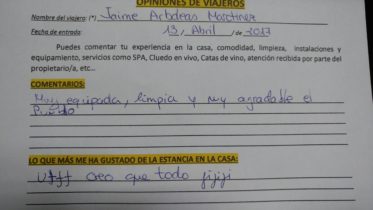 OPINIONES DE VIAJEROS
Nombre del viajero: (*) Jaime
Fecha de entrada: 13, Abril / de 2017
Puedes comentar tu experiencia en la casa, comodidad, limpieza, instalaciones y
equipamiento, servicios como SPA, Cluedo en vivo, Catas de vino, atención recibida por parte del
propietario/a, etc...
COMENTARIOS:
Muy equipada, limpia y muy agradable el
Pueblo
LO QUE MÁS ME HA GUSTADO DE LA ESTANCIA EN LA CASA:
Ufff creo que todo jijiji